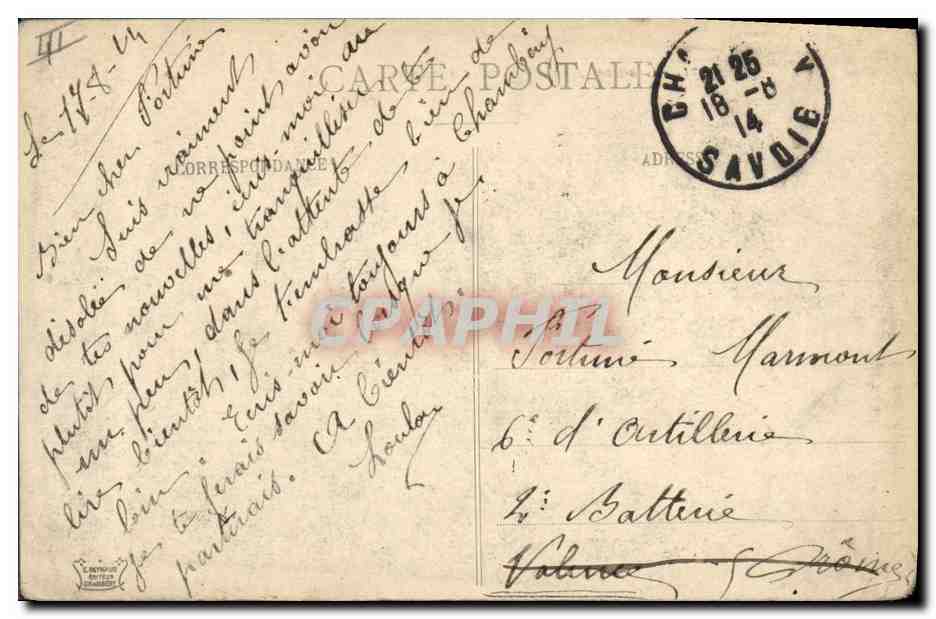 III
CARTE POSTALE
CORRESPONDANCE
ADRESSE
CH
21 25
18 - 8
14
SAVOIE
Le 17-8-14
Bien cher Fortuné
Suis vraiment
désolée de ne point avoir
de tes nouvelles, écris-moi au
plutôt, pour me tranquilliser
un peu, dans l'attente de te
lire bientôt, je t'embrasse bien de
loin. Ecris-moi toujours à Chambéry
je te ferais savoir lorsque je
partirais. A bientôt.
Loulou
Monsieur
Fortuné Marmont
6e d'Artillerie
2e Batterie
Valence (Drôme)
E. REYNAUD
EDITEUR
CHAMBERY
CPAPHIL